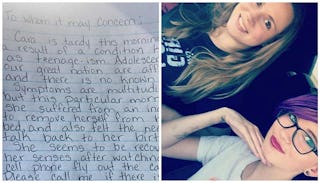 To whom it may concern:
Cara is tardy this morning
a result of a condition
as teenage-ism. Adolesce
our great nation are aff
and there is no known
Symptoms are multitudi
but this particular morn
she suffered from an in
to remove herself from h
bed, and also felt the ne
talk back to her birt
She seems to be reco
her senses after watchin
cell phone fly out the ca
Please call me if there i